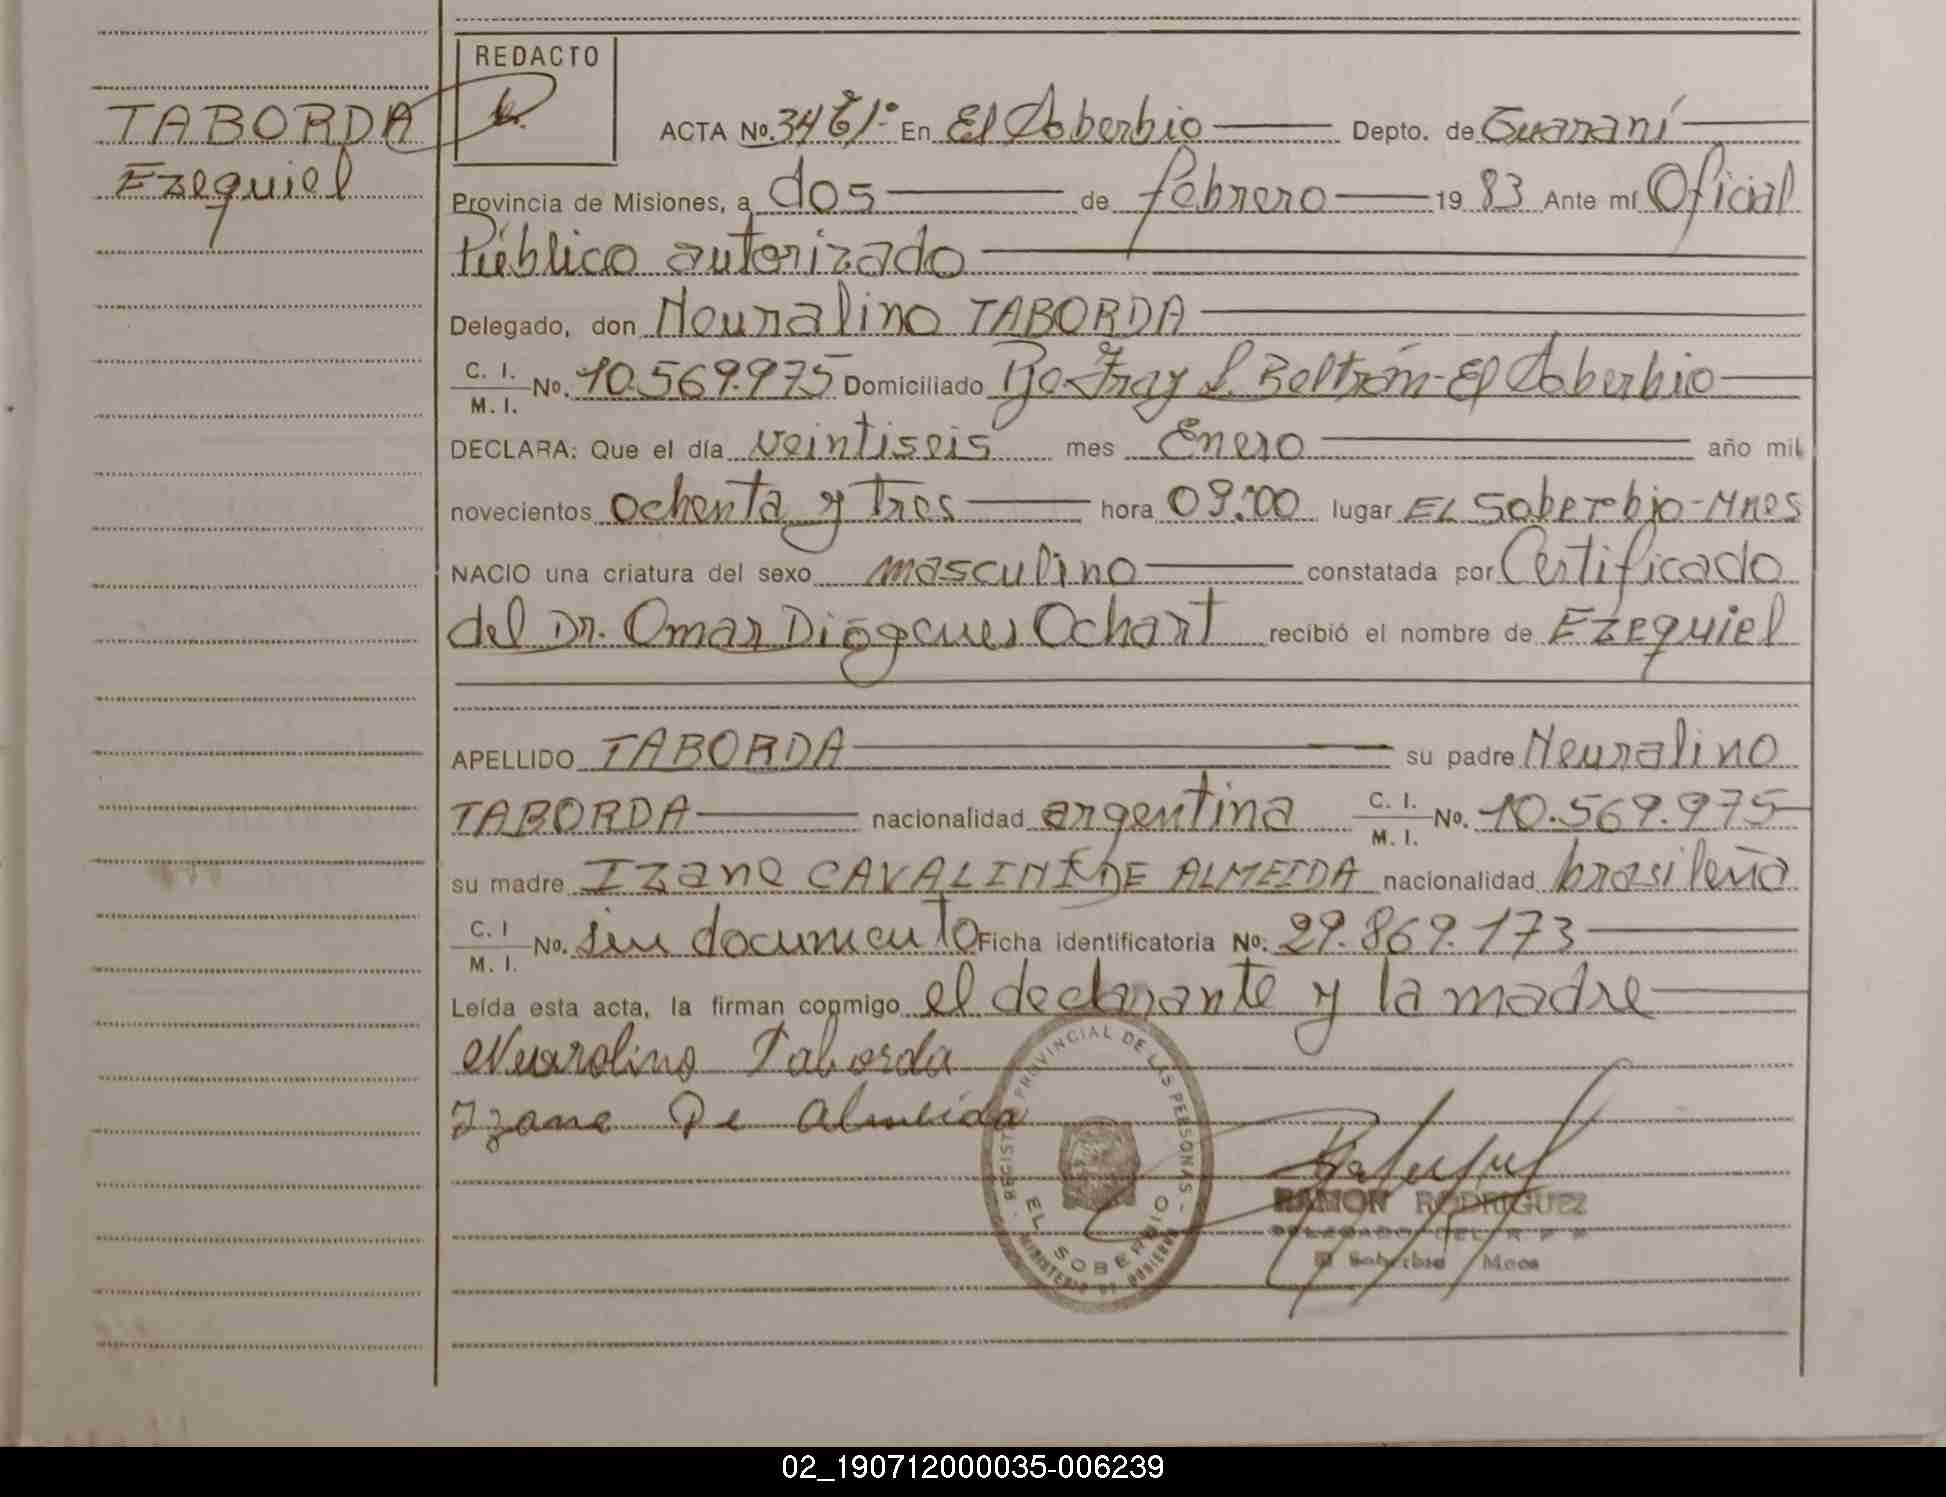 TABORDA
Ezequiel
REDACTO
ACTA No. 34 En El Soberbio Depto. de Guaraní
Provincia de Misiones, a dos de febrero 19 83 Ante mí Oficial
Público autorizado
Delegado, don Neuralino TABORDA
C. I. M. I. No. 10.569.975 Domiciliado Bo. Fray L. Beltrán - El Soberbio
DECLARA: Que el día veintiseis mes Enero año mil
novecientos ochenta y tres hora 09:00 lugar EL Soberebio - Mnes
NACIO una criatura del sexo masculino constatada por Certificado
del Dr. Omar Diógenes Ochart recibió el nombre de Ezequiel
APELLIDO TABORDA su padre Neuralino
TABORDA nacionalidad argentina C. I. M. I. No. 10.569.975
su madre Izane CAVALINI DE ALMEIDA nacionalidad brasileña
C. I M. I. No. sin documento Ficha identificatoria No. 29.869.173
Leída esta acta, la firman conmigo el declarante y la madre
Neurolino Taborda
Izane De Almeida
REGISTRO PROVINCIAL DE LAS PERSONAS
EL SOBERBIO
MINISTERIO DE GOBIERNO
RAMON RODRIGUEZ
DELEGADO DEL R P P
El Soberbio Mnes
02_190712000035-006239